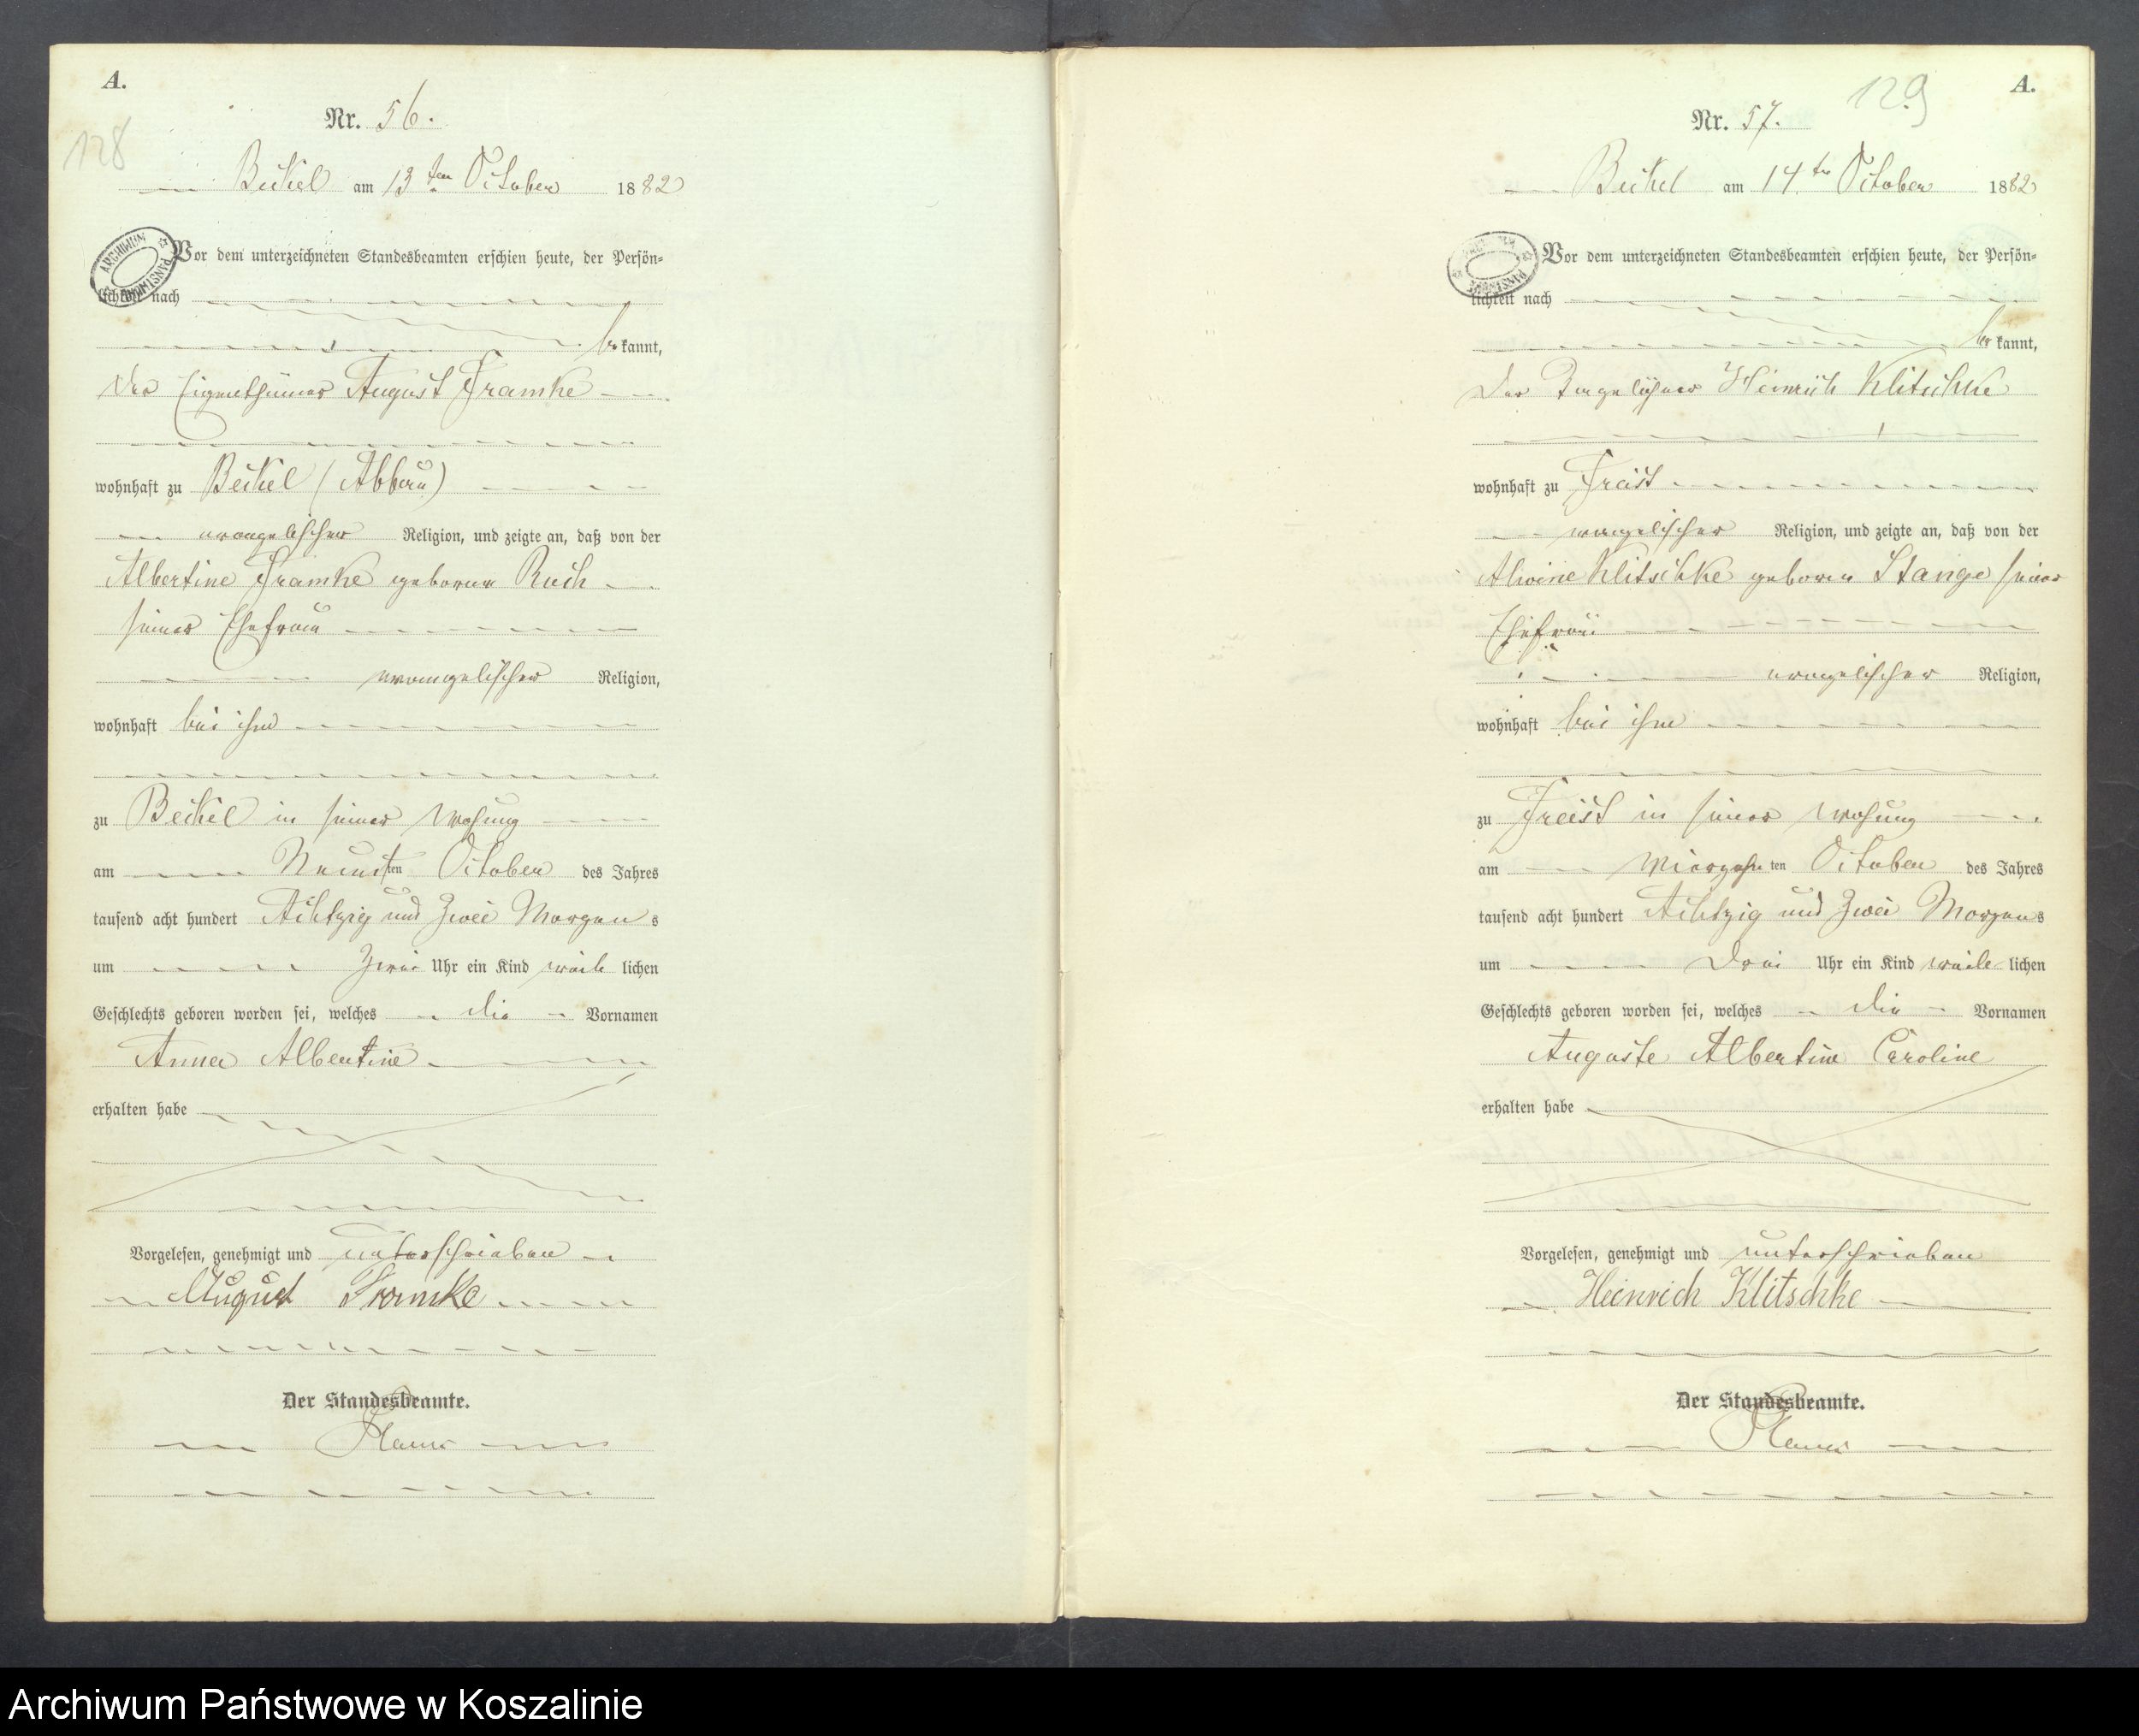 A.
128
Nr. 56.
Beckel am 13ten October 1882
ARCHIWUM PAŃSTWOWE
Vor dem unterzeichneten Standesbeamten erschien heute, der Persön-
lichkeit nach
be kannt,
der Eigenthümer August Framke
wohnhaft zu Beckel (Abbau)
evangelischer Religion, und zeigte an, daß von der
Albertine Framke geborene Ruch
seiner Ehefrau
evangelischer Religion,
wohnhaft bei ihm
zu Beckel in seiner Wohnung
am Neunten October des Jahres
tausend acht hundert Achtzig und Zwei Morgens
um Zwei Uhr ein Kind weib lichen
Geschlechts geboren worden sei, welches die Vornamen
Anna Albertine
erhalten habe
Vorgelesen, genehmigt und unterschrieben
August Framke
Der Standesbeamte.
129
A.
Nr. 57.
Beckel am 14.ten October 1882
ARCHIWUM PAŃSTWOWE
Vor dem unterzeichneten Standesbeamten erschien heute, der Persön-
lichkeit nach
be kannt,
der Tagelöhner Heinrich Klitschke
wohnhaft zu Freist
evangelischer Religion, und zeigte an, daß von der
Alwine Klitschke geboren Stange seiner
Ehefrau
evangelischer Religion,
wohnhaft bei ihm
zu Freist in seiner Wohnung
am Vierzehnten October des Jahres
tausend acht hundert Achtzig und Zwei Morgens
um Drei Uhr ein Kind weib lichen
Geschlechts geboren worden sei, welches die Vornamen
Auguste Albertine Caroline
erhalten habe
Vorgelesen, genehmigt und unterschrieben
Heinrich Klitschke
Der Standesbeamte.
Archiwum Państwowe w Koszalinie